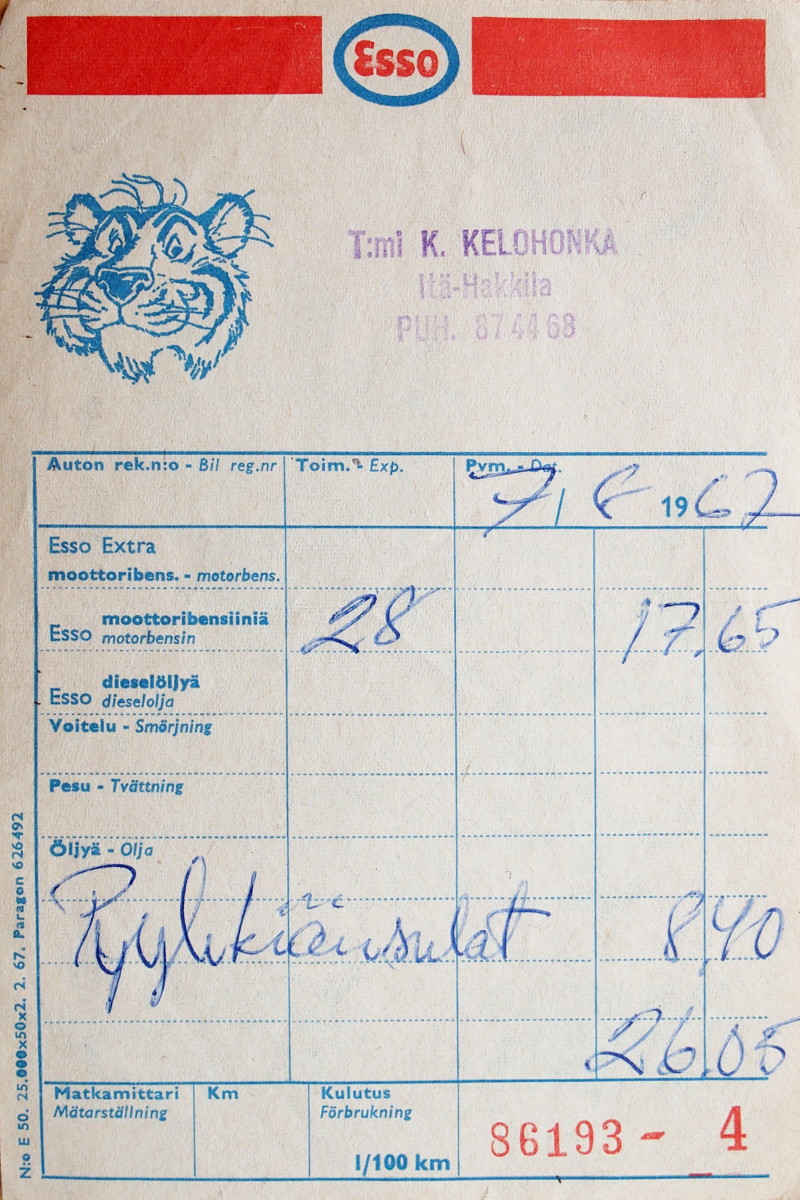 Esso
T:mi K. KELOHONKA
Itä-Hakkila
PUH. 87 44 68
Auton rek.n:o - Bil reg.nr Toim. - Exp. Pvm. - Dat.
7/8 1967
Esso Extra
moottoribens. - motorbens.
Esso moottoribensiiniä motorbensin 28 17.65
Esso dieselöljyä dieselolja
Voitelu - Smörjning
Pesu - Tvättning
Öljyä - Olja
Pyyhkiänsulat 8,40
26.05
Matkamittari Km Kulutus
Mätarställning Förbrukning
l/100 km
86193 - 4
N:o E 50. 25.000x50x2. 2. 67. Paragon 626492